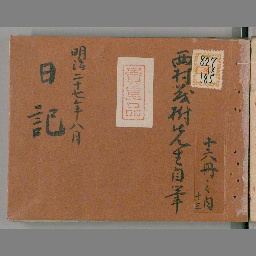 827
185
十六冊之内
十三
西村茂樹先生自筆
貴重品
明治二十七年八月
日記